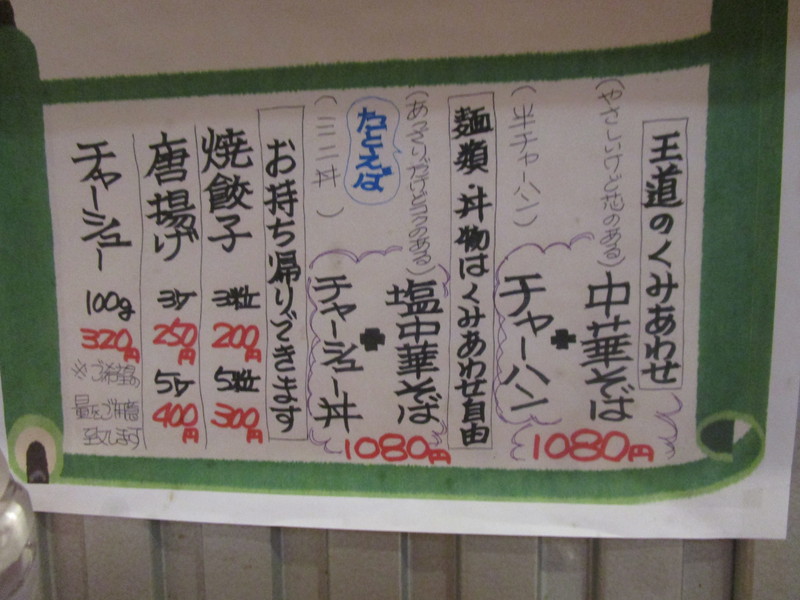 王道のくみあわせ
(やさしいけど芯のある)
中華そば
+
(半チャーハン)
チャーハン
1080円
麺類・丼物はくみあわせ自由
たとえば
(あっさりだけどコクのある)
塩中華そば
+
(ミニ丼)
チャーシュー丼
1080円
お持ち帰りできます
焼餃子 3粒 200円 5粒 300円
唐揚げ 3ケ 250円 5ケ 400円
チャーシュー 100g 320円
※ご希望の
量をご用意
致します